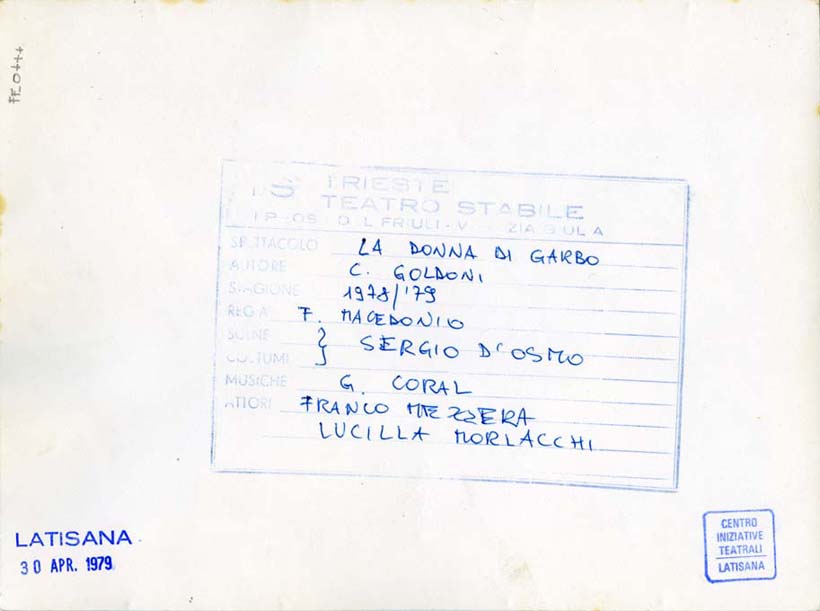 TRIESTE
TEATRO STABILE
FRIULI-V
SPETTACOLO LA DONNA DI GARBO
AUTORE C. GOLDONI
STAGIONE 1978/'79
REGIA F. MACEDONIO
SCENE } SERGIO D'OSMO
COSTUMI
MUSICHE G. CORAL
ATTORI FRANCO MEZZERA
LUCILLA MORLACCHI
LATISANA
30 APR. 1979
CENTRO
INIZIATIVE
TEATRALI
LATISANA